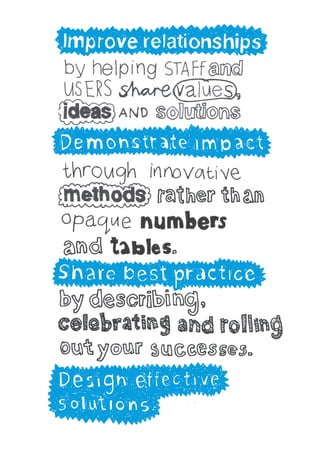 Improve relationships
by helping STAFF and
USERS share values,
ideas AND solutions
Demonstrate impact
through innovative
methods rather than
opaque numbers
and tables.
Share best practice
by describing,
celebrating and rolling
out your successes.
Design effective
solutions.